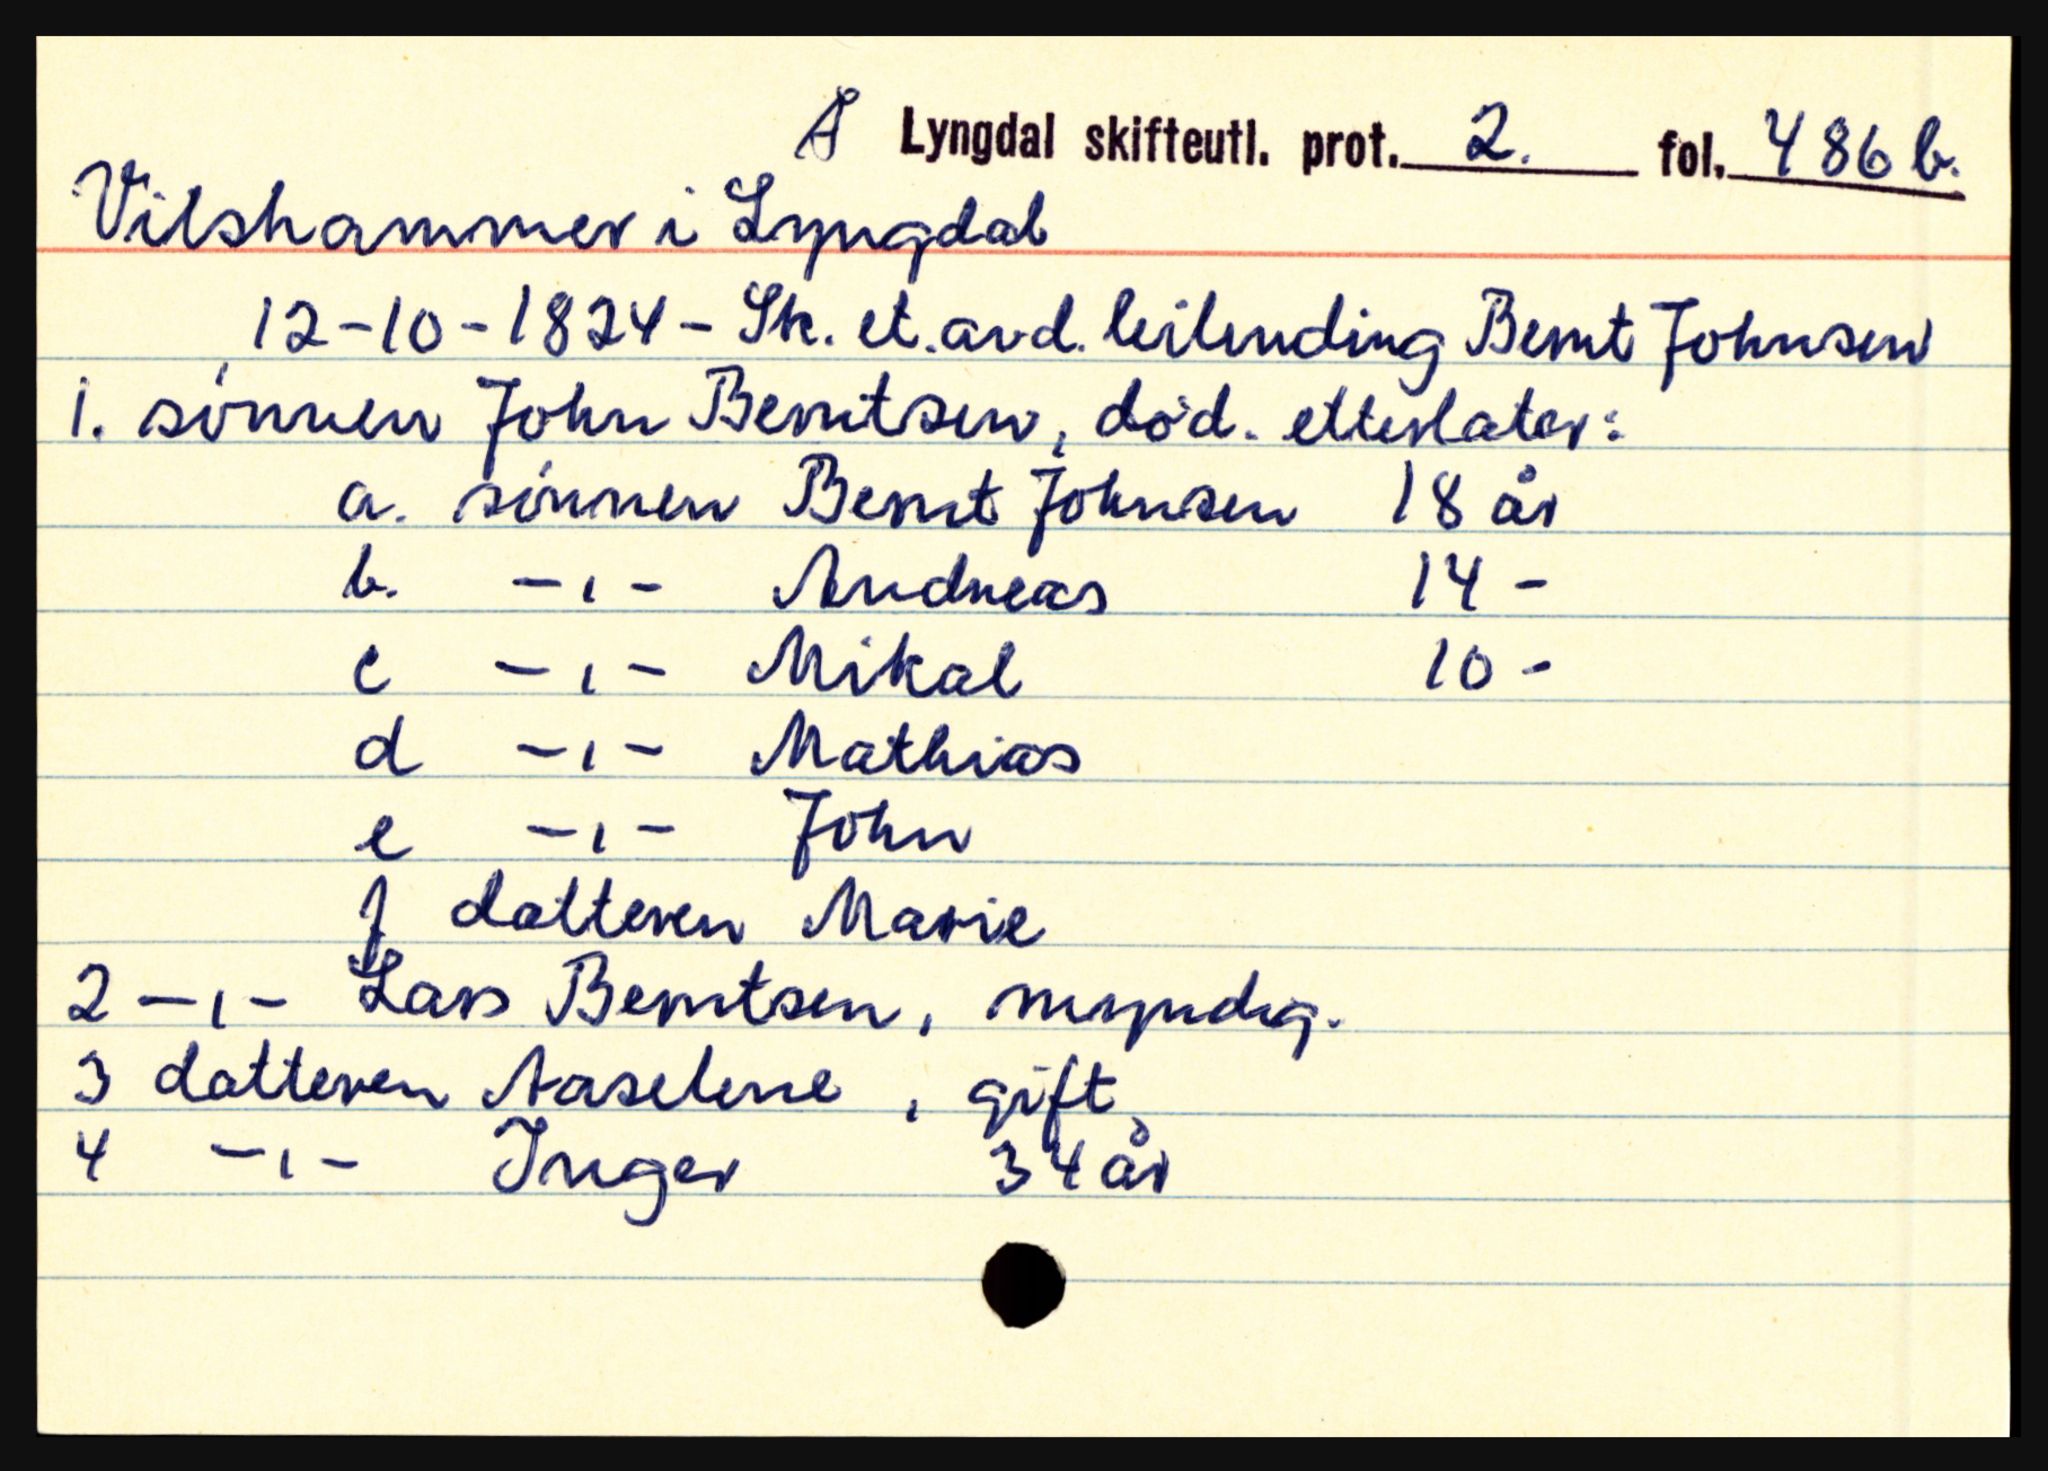 Å Lyngdal skifteutl. prot. 2. fol. 486 b.
Vilshammer i Lyngdal
12-10-1824 - Sk. et. avd. leilending Bernt Johnsen
1. sønnen John Berntsen, død. etterlater:
a. sønnen Bernt Johnsen 18 år
b. -,- Andreas 14 -
c -,- Mikal 10 -
d -,- Mathias
e -,- John
f datteren Marie
2 -,- Lars Berntsen, myndig.
3 datteren Aaselene, gift
4 -,- Inger 34 år